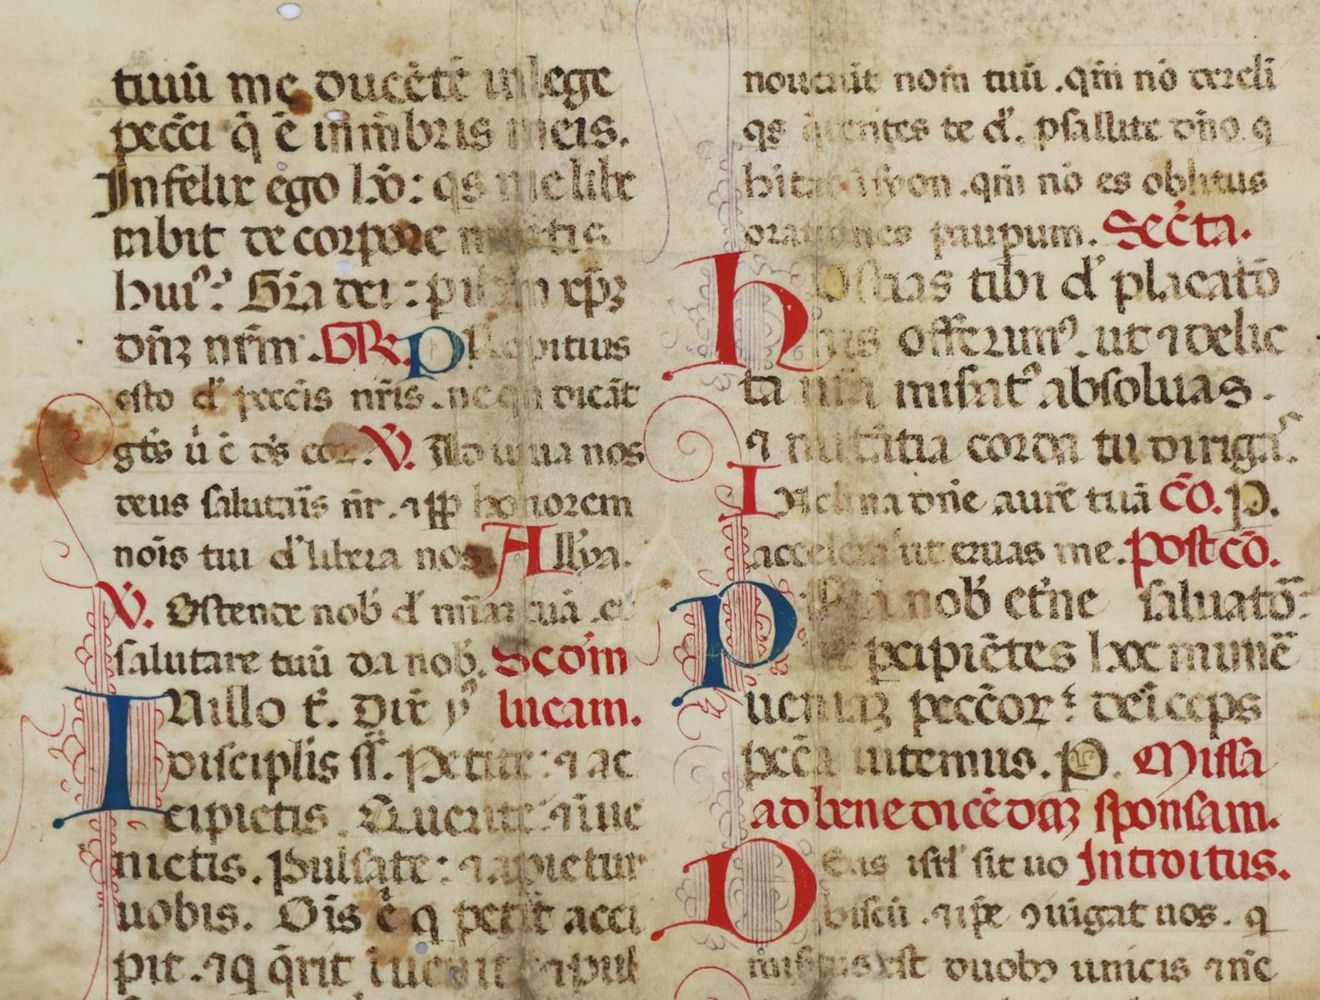 tiuū me ducētē in lege
pecc̄i q̄ ē in mēbris meis.
Infelix ego hō: qs me libe
rabit de corpore mortis
huiꝰ? Gr̄a dei: p ih̄m xp̄ꝫ
dn̄ꝫ nr̄m. GR. Propitius
esto d' pecc̄is nr̄is. ne qn̄ dicāt
gēs ū ē ds̄ eoꝝ. V. Adiuua nos
deus salutaris nr̄. ⁊ ꝓp honorem
nōis tui d' libera nos. All'ya.
V. Ostende nob̄ d' miām tuā. et
salutare tuū da nob̄. Scd'm
IN illo t̄. Dix̄ ih̄s lucam.
disciplis s. Petite: ⁊ ac
cipietis. Querite: ⁊ īue
nietis. Pulsate: ⁊ apietur
uobis. Oīs ē q petit acci
pit. ⁊ q q̄rit īuenit ⁊ pul
nouerūt nom̄ tuū. qm̄ nō dereli
qs querentes te d'. psallite dn̄o. q
hitat i syon. qm̄ nō es oblitus
orationes paupum. Sec̄ta.
Hostias tibi d' placatō
nis offerimꝰ. ut ⁊ delic
ta nr̄a misat' absoluas.
⁊ nutātia corda tu dirigas.
Inclina dn̄e aurē tuā cō. P.
accelera ut eruas me. Post cō.
P nob̄ et̄ne saluatō
pcipiētes hec munē
ueniaꝫ pecc̄oꝝ: deīceps
pecc̄a uitemus. P. Missa
ad benedicēdaꝫ sponsam.
Deus isrl' sit uo Introitus.
biscū. ⁊ ip̄e ꝯiūgat nos. q
mis̄tus est duobꝰ unicis ⁊ nc̄